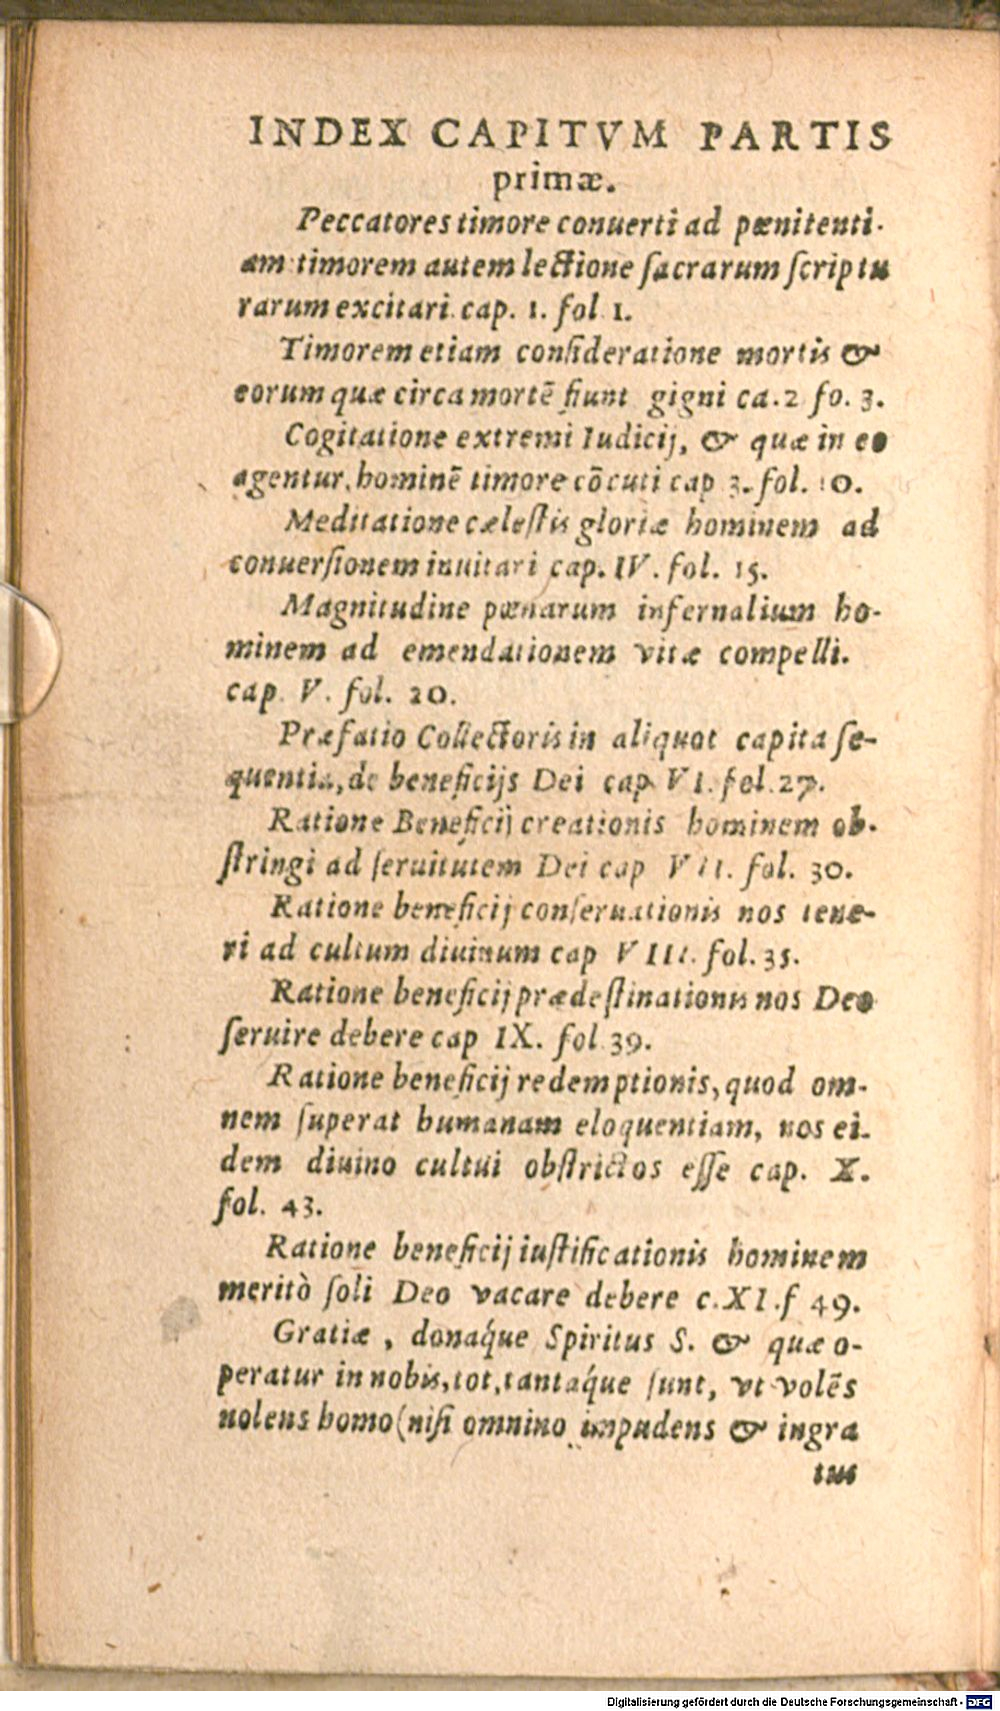 INDEX CAPITVM PARTIS
primæ.
Peccatores timore conuerti ad pœnitenti-
am: timorem autem lectione ſacrarum ſcriptu
rarum excitari. cap. 1. fol 1.
Timorem etiam conſideratione mortis &
eorum quæ circa mortē fiunt gigni ca. 2 fo. 3.
Cogitatione extremi Iudicij, & quæ in eo
agentur, hominē timore cōcuti cap 3. fol. 10.
Meditatione cæleſtis gloriæ hominem ad
conuerſionem inuitari cap. IV. fol. 15.
Magnitudine pœnarum infernalium ho-
minem ad emendationem vitæ compelli.
cap. V. fol. 20.
Præfatio Collectoris in aliquot capita ſe-
quentia, de beneficijs Dei cap. VI. fol. 27.
Ratione Beneficij creationis hominem ob-
ſtringi ad ſeruitutem Dei cap VII. fol. 30.
Ratione beneficij conſeruationis nos tene-
ri ad cultum diuinum cap VIII. fol. 35.
Ratione beneficij prædeſtinationis nos Deo
ſeruire debere cap IX. fol 39.
Ratione beneficij redemptionis, quod om-
nem ſuperat humanam eloquentiam, nos ei-
dem diuino cultui obſtrictos eſſe cap. X.
fol. 43.
Ratione beneficij iuſtificationis hominem
meritò ſoli Deo vacare debere c. XI. f 49.
Gratiæ, donaq́ue Spiritus S. & quæ o-
peratur in nobis, tot, tantaq́ue ſunt, vt volēs
nolens homo (niſi omnino impudens & ingra
tus
Digitalisierung gefördert durch die Deutsche Forschungsgemeinschaft - DFG